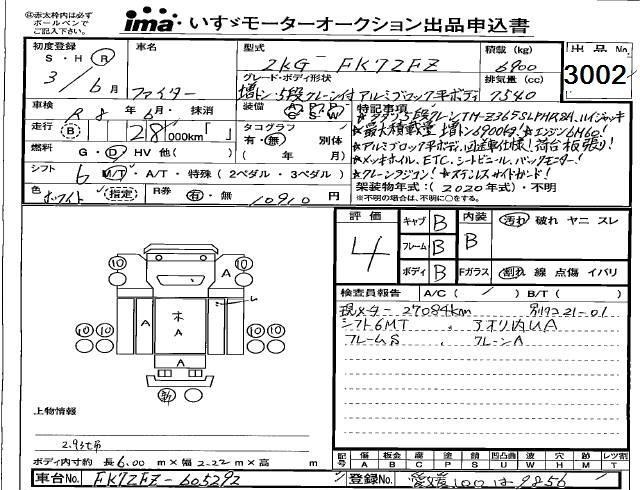 ㊟赤太枠内は必ず
ボールペンで
ご記入下さい。
ima いすゞモーターオークション出品申込書
初度登録
S・H・R
3/6月
車名
ファイター
型式
2KG-FK72FZ
積載 (kg)
6900
出品No.
3002
グレード・ボディ形状
増トン 5段クレーン付 アルミブロック平ボディ
排気量 (cc)
7540
車検
R8年6月・抹消
装備
A/C P/S P/W
特記事項
☆タダノ5段クレーンTM-ZX365SLPHRSA、ハイジャッキ
走行
B 28000km「」
タコグラフ
有・無 別体
(年 月)
☆最大積載量 増トン6900kg!☆エンジン6M60!
燃料
G・D・HV 他( )
☆アルミブロック平ボディ、回送仕様!荷台板張り!
☆メッキホイル、ETC、シートビニール、バックモニター!
シフト
6 M/T・A/T・特殊 (2ペダル・3ペダル)
☆クレーンラジコン!☆ステンレスサイドガード!
色
ホワイト (指定)
R券
有・無 10910円
架装物年式:(2020年式)・不明
※不明の場合は、不明に○をする。
評価
4
キャブ B
フレーム B
ボディ B
内装
B
汚れ 破れ ヤニ スレ
Fガラス
割れ 線 点傷 イバリ
検査員報告 A/C ( / ) B/T ( )
現メーター 27084km 別リコ 21-01
シフト6MT、アオリ内UA
フレームS、クレーンA
10 10
A
A 木 A A
10 10 10 10
A
新
上物情報
2.93t吊
ボディ内寸約 長6.00m×巾2.22m×高 m
記号
傷 板金 腐 塗 錆 凹凸曲 波 穴 跡 レッツ割
A B C P S U W H M T
車台No. FK72FZ-605292
登録No. 愛媛100は9856